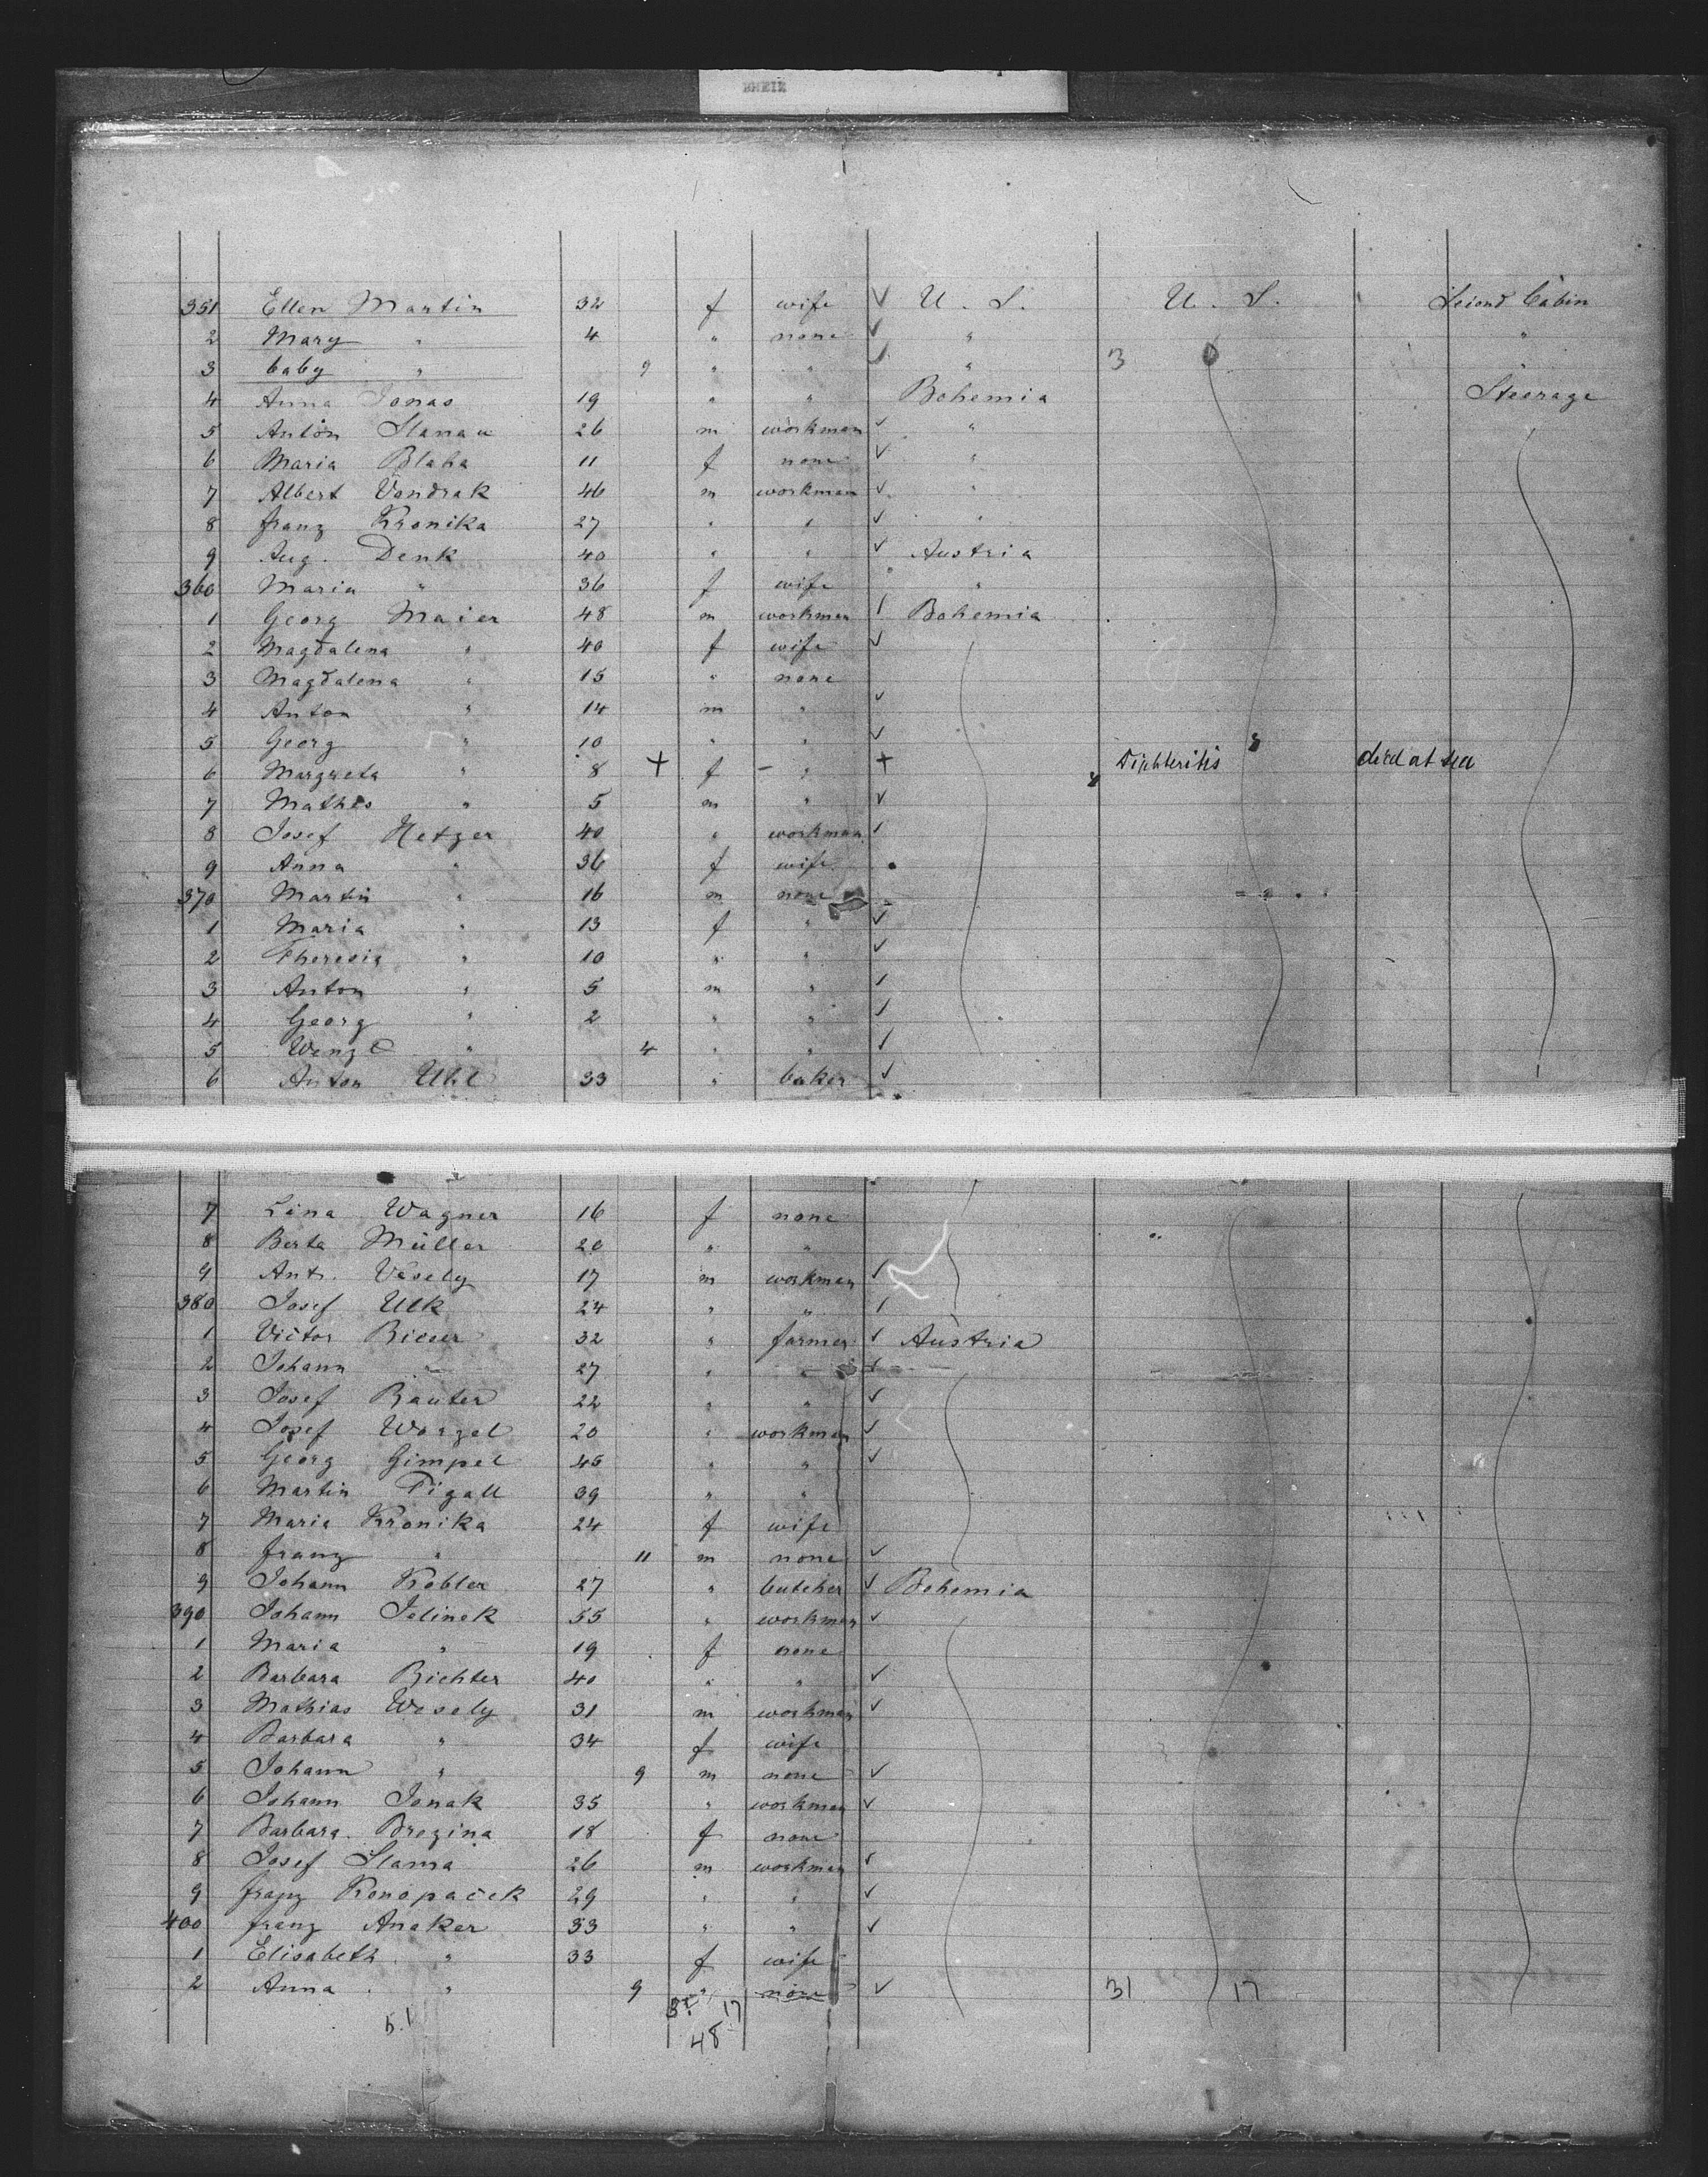 RHEIN
351 Ellen Martin 32 f wife ✓ U. S. U. S. Second Cabin
2 Mary " 4 " none ✓ " "
3 baby " 9 " " ✓ " 3
4 Anna Jonas 19 " " Bohemia Steerage
5 Anton 26 m workman ✓ "
6 Maria Blaha 11 f none ✓ "
7 Albert Vondrak 46 m workman ✓ "
8 Franz Kronika 27 " " ✓ "
9 Aug. Denk 40 " " ✓ Austria
360 Maria " 36 f wife "
1 Georg Maier 48 m workman ✓ Bohemia
2 Magdalena " 40 f wife ✓
3 Magdalena " 15 " none
4 Anton " 14 m " ✓
5 Georg " 10 " " ✓
6 Margreta " 8 + f – " + Diphteritis died at sea
7 Mathes " 5 m " ✓
8 Josef Hetzer 40 " workman ✓
9 Anna " 36 f wife
370 Martin " 16 m none
1 Maria " 13 f " ✓
2 Theresia " 10 " " ✓
3 Anton " 5 m " ✓
4 Georg " 2 " " ✓
5 Wenzl " 4 " " ✓
6 Anton Uhl 33 " baker ✓
7 Lina Wagner 16 f none
8 Berta Müller 20 " "
9 Ant. Vesely 17 m workman ✓
380 Josef Ulk 24 " " ✓
1 Victor 32 " farmer ✓ Austria
2 Johann " 27 " " ✓
3 Josef Rauter 22 " " ✓
4 Josef Worzel 20 " workman ✓
5 Georg Gimpel 45 " " ✓
6 Martin Tigall 39 " "
7 Maria Kronika 24 f wife
8 Franz " 11 m none ✓
9 Johann Kobler 27 " butcher ✓ Bohemia
390 Johann Jelinek 55 " workman ✓
1 Maria " 19 f none
2 Barbara Richter 40 " " ✓
3 Mathias Wesely 31 m workman ✓
4 Barbara " 34 f wife
5 Johann " 9 m none ✓
6 Johann Jonak 35 " workman ✓
7 Barbara Brezina 18 f none
8 Josef Slama 26 m workman ✓
9 Franz Konopacek 29 " " ✓
400 Franz Anaker 33 " " ✓
1 Elisabeth " 33 f wife
2 Anna " 9 " none ✓ 31 17
5.1 17
48